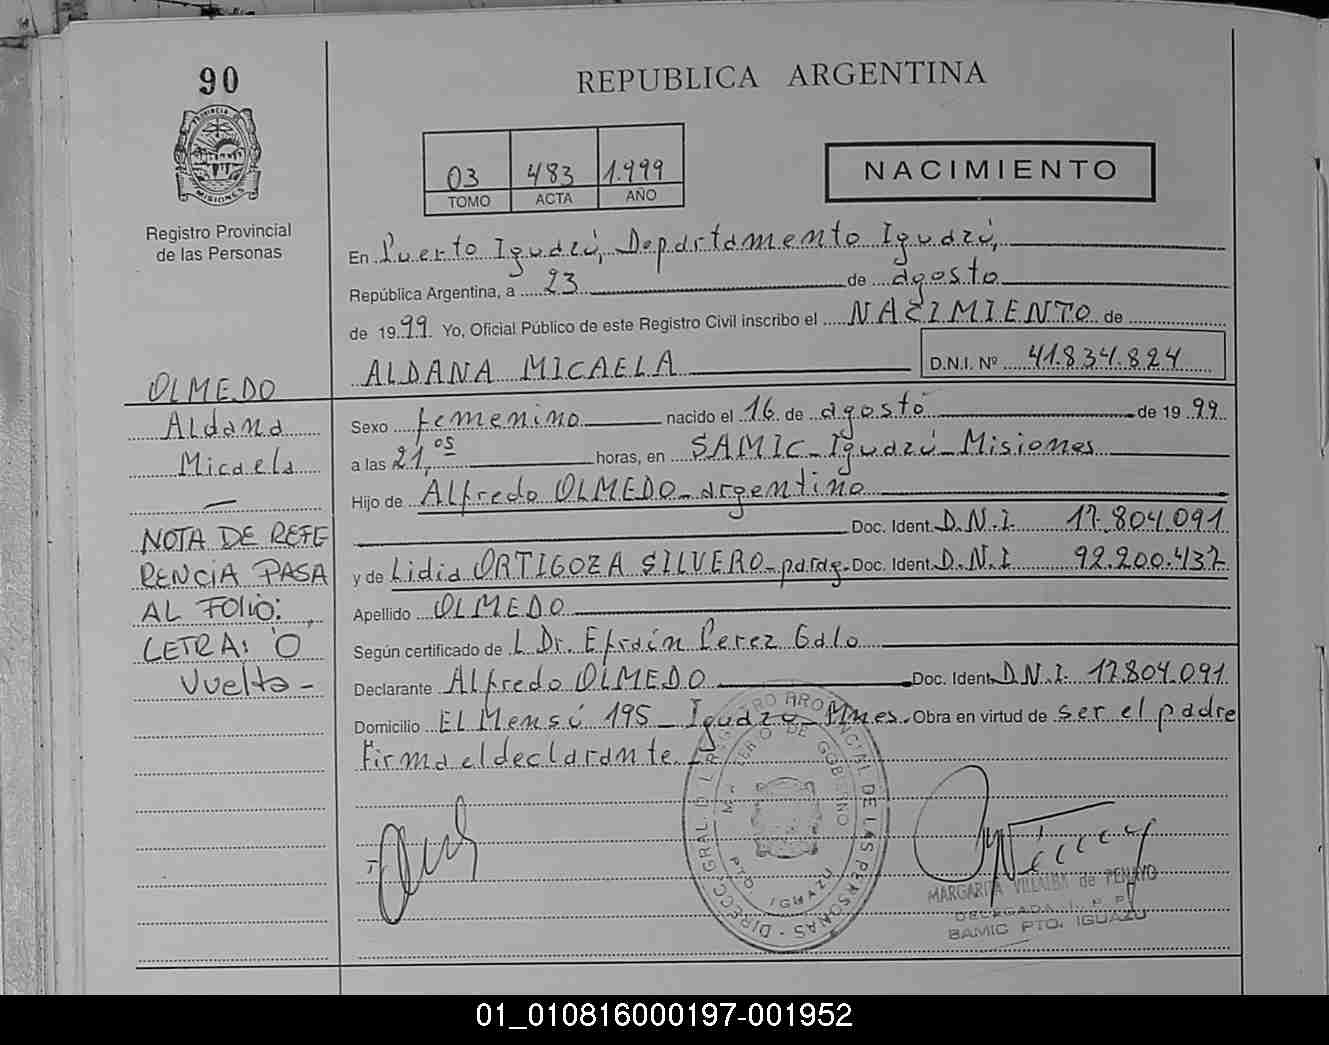 90
REPUBLICA ARGENTINA
PROVINCIA DE MISIONES
03 483 1.999
TOMO ACTA AÑO
NACIMIENTO
Registro Provincial
de las Personas
En Puerto Iguazú, Departamento Iguazú,
República Argentina, a 23 de agosto
de 1999 Yo, Oficial Público de este Registro Civil inscribo el NACIMIENTO de
ALDANA MICAELA D.N.I. Nº 41.834.824
OLMEDO
Aldana
Micaela
Sexo femenino nacido el 16 de agosto de 1999
a las 21,05 horas, en SAMIC - Iguazú - Misiones
Hijo de Alfredo OLMEDO - argentino
Doc. Ident. D.N.I. 17.804.091
y de Lidia ORTIGOZA SILVERO - parag. Doc. Ident. D.N.I 92.200.437
Apellido OLMEDO
Según certificado de L Dr. Efraín Perez Galo
Declarante Alfredo OLMEDO Doc. Ident. D.N.I. 17.804.091
Domicilio El Mensú 195 - Iguazú - Mnes. Obra en virtud de ser el padre
Firma el declarante
NOTA DE REFE
RENCIA PASA
AL FOLIO:
LETRA: O
Vuelta -
DIRECC. GRAL. DEL REGISTRO PROVINCIAL DE LAS PERSONAS
DE GOBIERNO
PTO. IGUAZU
MARGARITA VILLALBA de PENAYO
DELEGADA
SAMIC PTO. IGUAZU
01_010816000197-001952